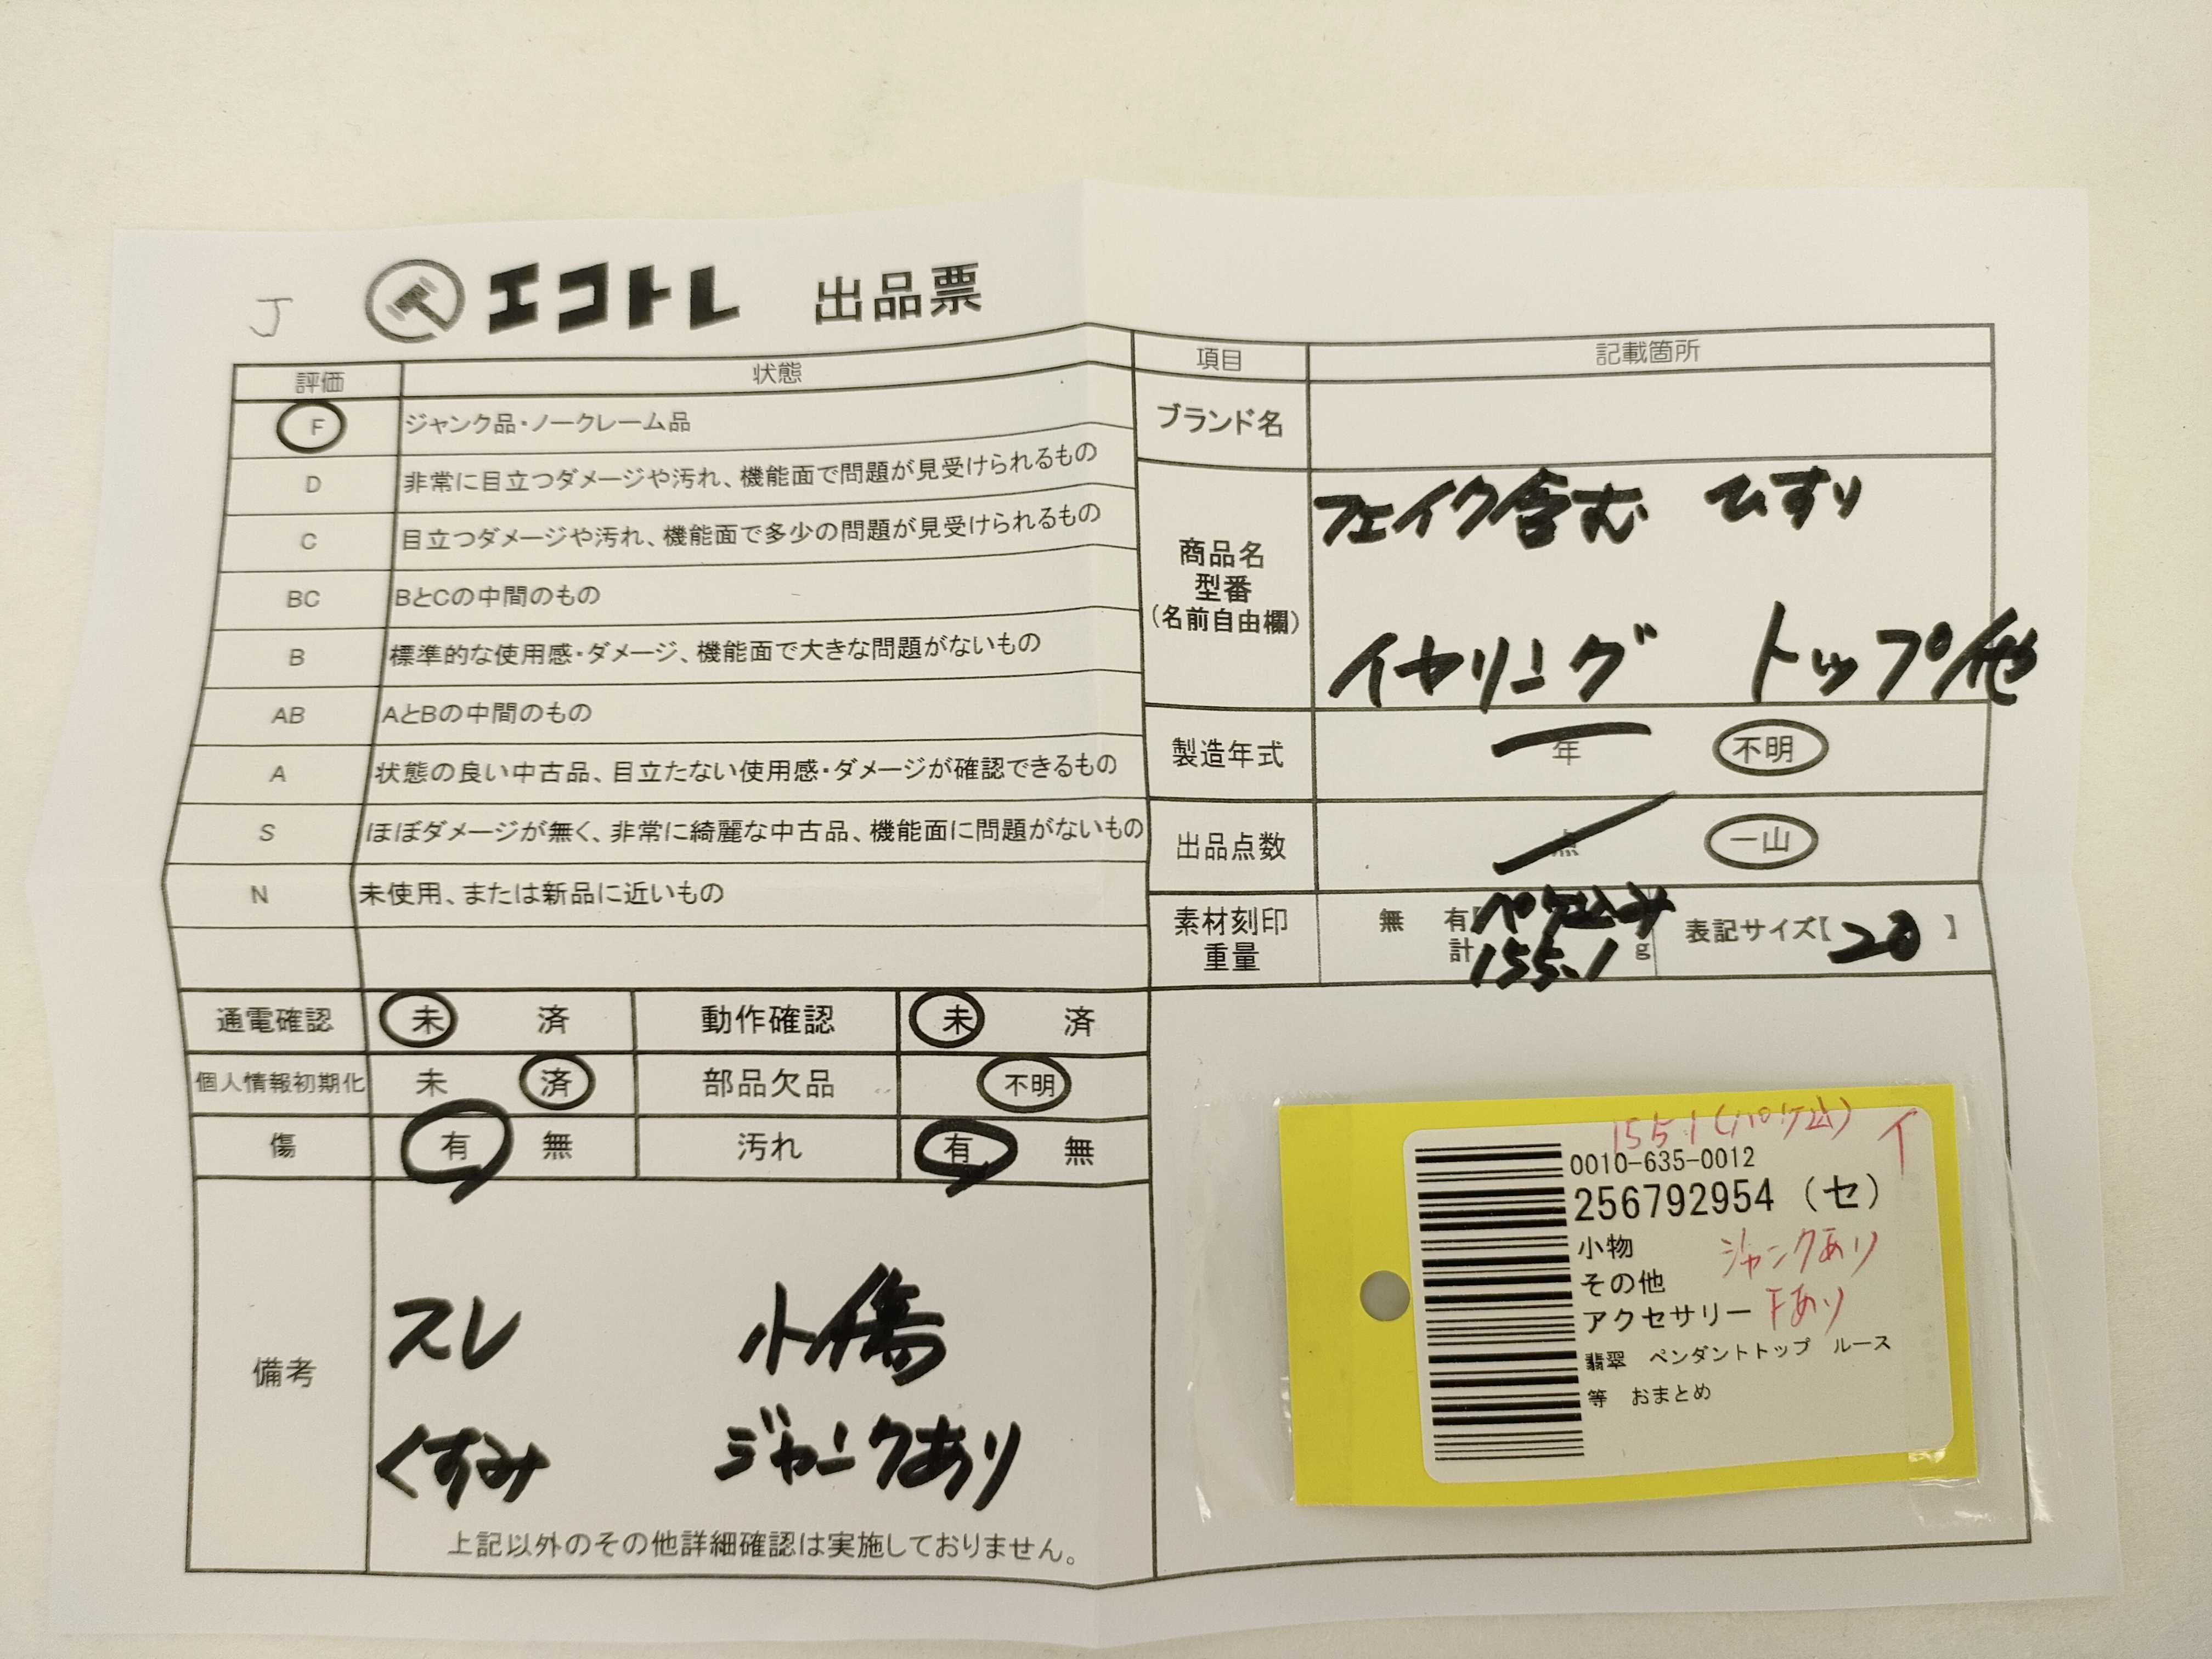 J エコトレ 出品票
評価 状態
F ジャンク品・ノークレーム品
D 非常に目立つダメージや汚れ、機能面で問題が見受けられるもの
C 目立つダメージや汚れ、機能面で多少の問題が見受けられるもの
BC BとCの中間のもの
B 標準的な使用感・ダメージ、機能面で大きな問題がないもの
AB AとBの中間のもの
A 状態の良い中古品、目立たない使用感・ダメージが確認できるもの
S ほぼダメージが無く、非常に綺麗な中古品、機能面に問題がないもの
N 未使用、または新品に近いもの
通電確認 未 済 動作確認 未 済
個人情報初期化 未 済 部品欠品 不明
傷 有 無 汚れ 有 無
備考
スレ 小傷
くすみ ジャンクあり
上記以外のその他詳細確認は実施しておりません。
項目 記載箇所
ブランド名
商品名
型番
(名前自由欄)
フェイク含む ひすい
イヤリング トップ/他
製造年式 年 不明
出品点数 点 一山
素材刻印 無 有【パケ込み
重量 計 155.1 g
表記サイズ【20】
155.1(パケ込) イ
0010-635-0012
256792954 (セ)
小物
その他 ジャンクあり
アクセサリー Fあり
翡翠 ペンダントトップ ルース
等 おまとめ